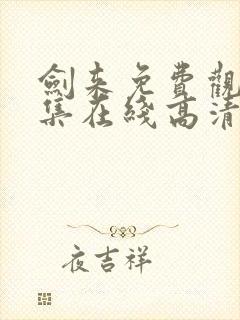 劍来免費觀
集在綫高清
夜吉祥